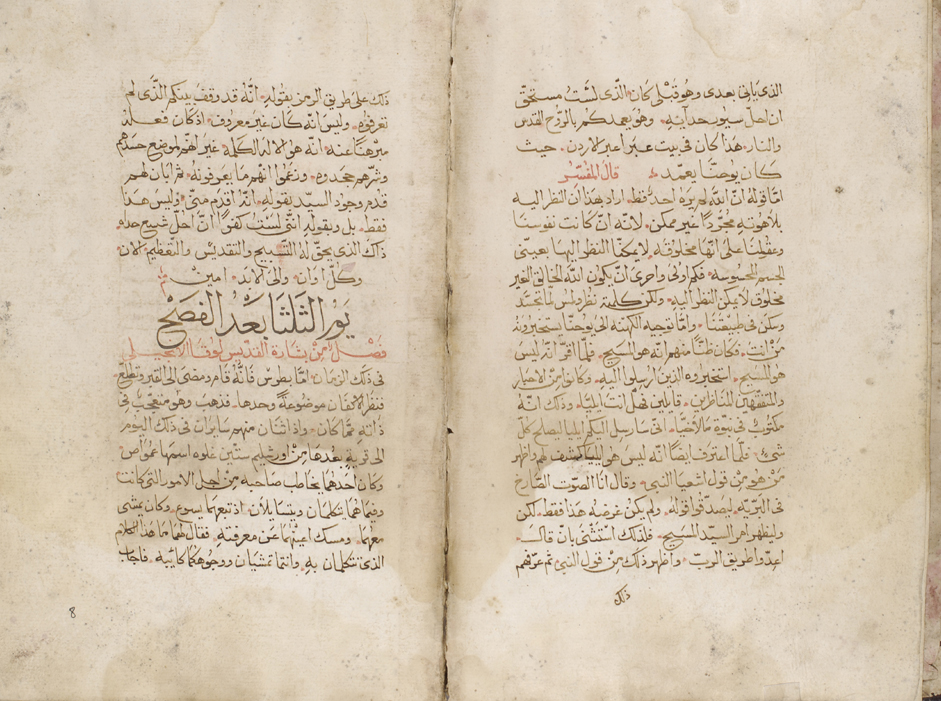 الذى يأتى بعدى وهو قبلى كان الذى لست مستحق
ان احل سيور حدايه وهو يعمدكم بالروح القدس
والنار هذا كان فى بيت عبرا عبر الاردن حيث
كان يوحنا يعمد قال المفسر
اما قوله ان الله لم يره احد قط اراد بهذا ان النظر اليه
بلاهوته مجردا غير ممكن لانه ان كانت نفوسنا
وعقولنا على انها مخلوقه لا يمكنا النظر اليها بعينى
الجسم المحسوسه فكم اولى واحرى ان يكون الله الخالق الغير
مخلوق لا يمكن النظر اليه ولكن كلمته نظر ولمس لما تجسد
وسكن فى طبيعتنا واما توجيه الكهنه الى يوحنا يستخبرونه
من انت فكان ظنا منهم انه هو المسيح فلما اقر انه ليس
هو المسيح استخبروه الذين ارسلوا اليه وكانوا من الاحبار
والمتفقهين المناظرين قايلين فهل انت ايليا وذلك انه
مكتوب فى نبوة ملاخيا انى سارسل اليكم ايليا ليصلح كل
شى فلما اعترف ايضا انه ليس هو ايليا كشف لهم واظهر
من هو من قول اشعيا النبى وقال انا الصوت الصارخ
فى البريه ليصدقوا قوله ولم يكن غرضه هذا فقط لكن
وليظهر امر السيد المسيح فلذلك استثنى بان قال
اعدوا طريق الرب واظهر ذلك من قول النبى ثم عرفهم
ذلك
ذلك على طريق الرمز بقوله انه قد وقف بينكم الذى لم
تعرفوه وليس انه كان غير معروف اذ كان فعله
مبرهنا عنه انه هو الاله الكلمه غير انهم لموضع حسدهم
وشرهم جحدوه وزعموا انهم ما يعرفونه ثم ابان لهم
قدم وجود السيد بقوله انه اقدم منى وليس هذا
فقط بل وبقوله اننى لست كفوا ان احل شسع حذاه
ذاك الذى يحق له التسبيح والتقديس والتعظيم الان
وكل اوان والى الابد امين
يوم الثلثا بعد الفصح
فصل من بشارة القديس لوقا الانجيلى
فى ذلك الزمان اما بطرس فانه قام ومضى الى القبر وتطلع
فنظر الاكفان موضوعة وحدها فذهب وهو متعجب فى
ذاته مما كان واذا اثنان منهم سايران فى ذلك اليوم
الى قرية بعدها من اورشليم ستين غلوه اسمها عمواص
وكان احدهما يخاطب صاحبه من اجل الامور التى كانت
وفيما هما يتكلمان ويتسايلان اذ تبعهما يسوع وكان يمشى
معهما ومسك اعينهما عن معرفته فقال لهما ما هذا الكلام
الذى تتكلمان به وانتما تمشيان ووجوهكما كايبه فاجاب
8